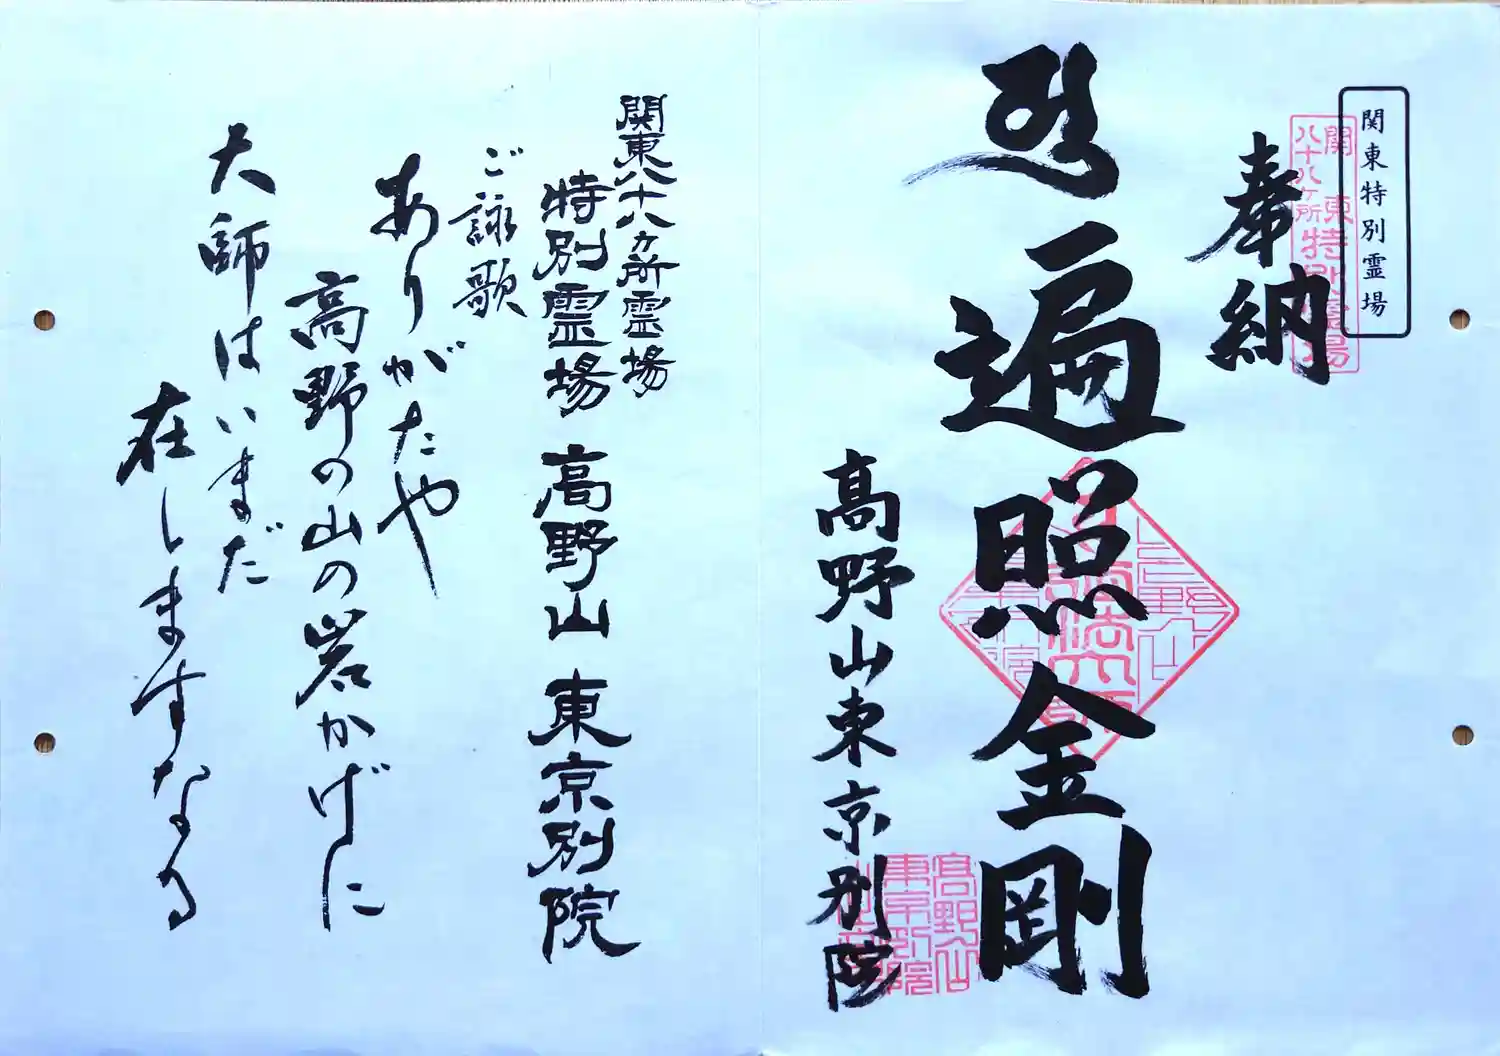 関東特別霊場
関東
八十八ヶ所特別霊場
奉納
遍照金剛
高野山東京別院
関東八十八ヵ所霊場
特別霊場 高野山 東京別院
ご詠歌
ありがたや
高野の山の岩かげに
大師はいまだ
在しますなる